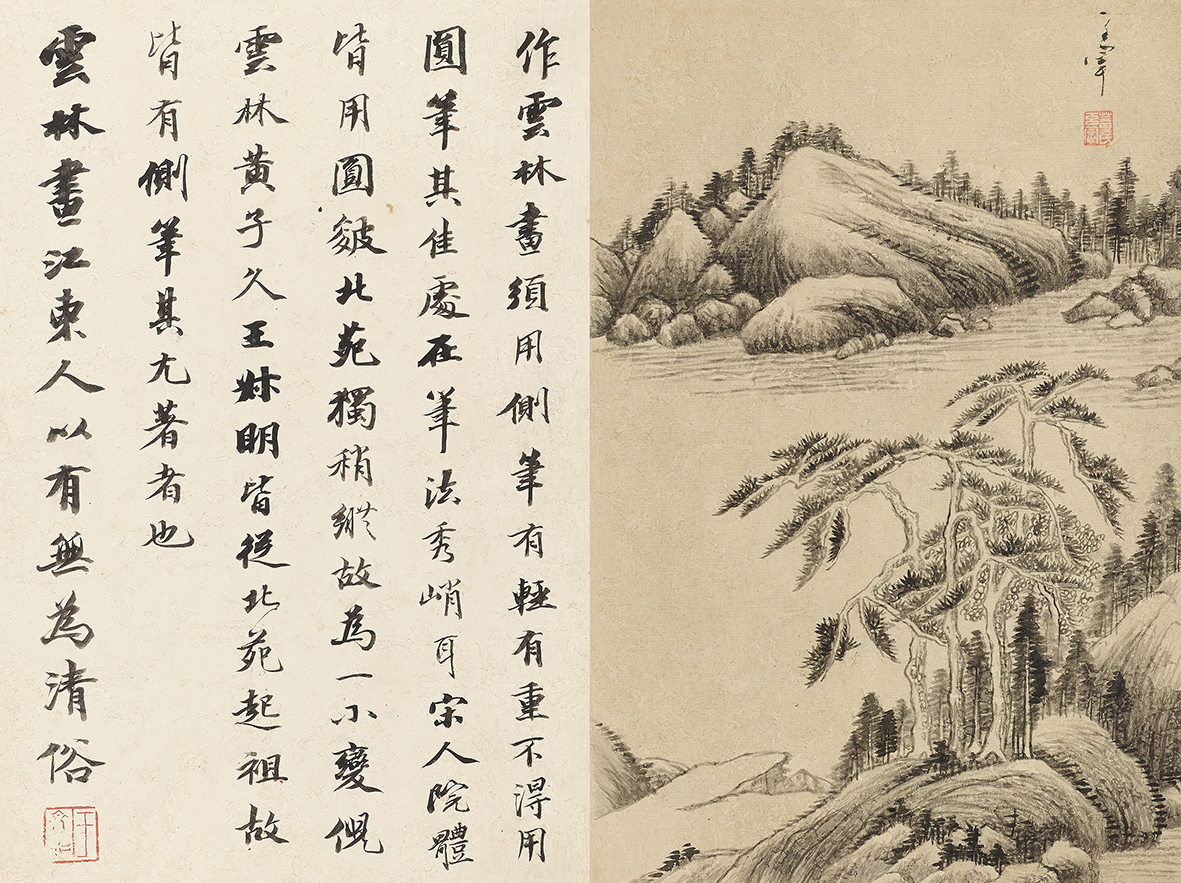 玄宰
作雲林畫須用側筆有輕有重不得用
圓筆其佳處在筆法秀峭耳宋人院體
皆用圓皴北苑獨稍縱故為一小變倪
雲林黃子久王叔明皆從北苑起祖故
皆有側筆其尤著者也
雲林畫江東人以有無為清俗